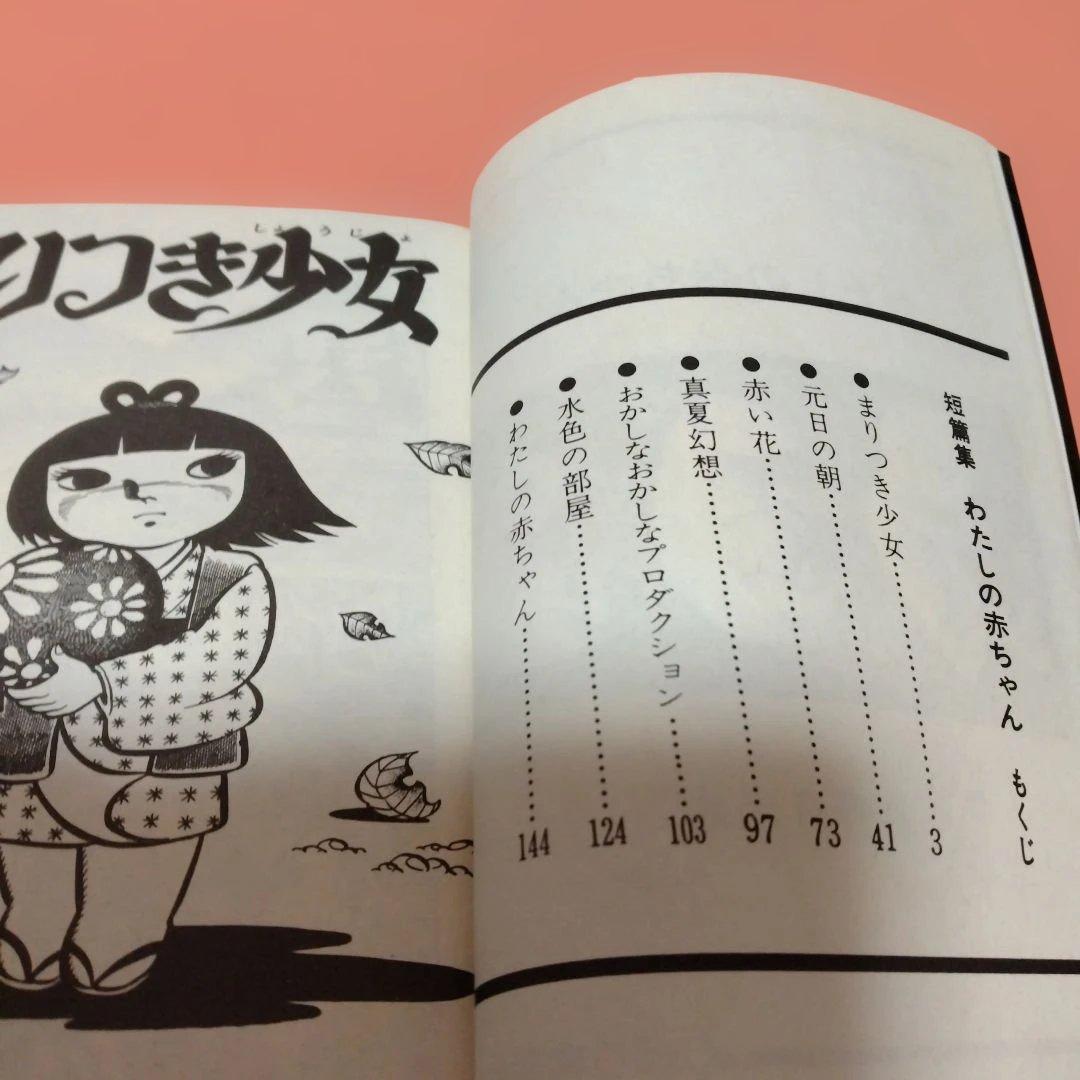 短篇集 わたしの赤ちゃん もくじ
●まりつき少女……3
●元日の朝……41
●赤い花……73
●真夏幻想……97
●おかしなおかしなプロダクション……103
●水色の部屋……124
●わたしの赤ちゃん……144
しょうじょ
りつき少女